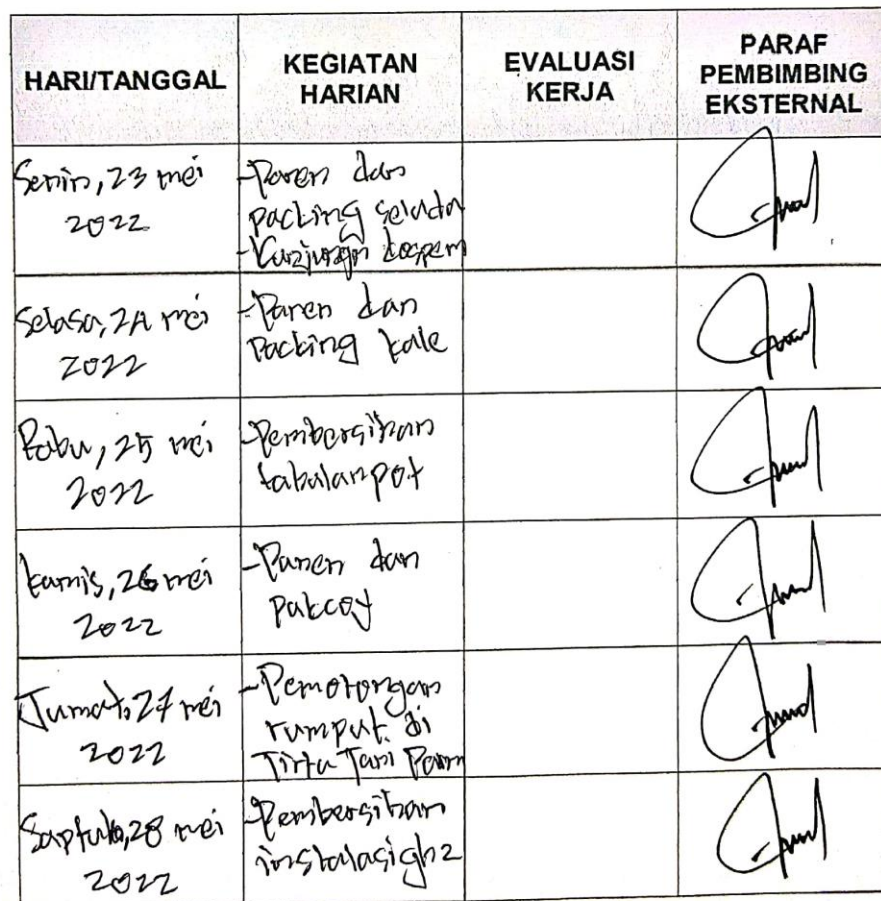 HARI/TANGGAL
KEGIATAN
HARIAN
EVALUASI
KERJA
PARAF
PEMBIMBING
EKSTERNAL
Senin, 23 mei
2022
-Panen dan
packing selada
-Kunjungn
Selasa, 24 mei
2022
-Panen dan
Packing kale
Rabu, 25 mei
2022
-Pembersihan
tabulanpot
kamis, 26 mei
2022
-Panen dan
pakcoy
Jumat, 27 mei
2022
-Pemotongan
rumput di
Tirta Tani Parm
28 mei
2022
-Pembersihan
instalasi gh2